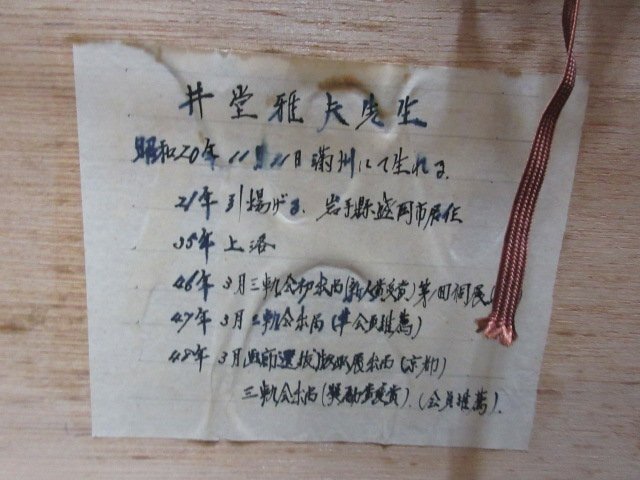 井堂雅夫先生
昭和20年11月11日満州にて生れる
21年引揚げる、岩手県盛岡市居住
35年上洛
46年3月三軌会初出品(新人賞受賞)第一回個展
47年3月三軌会出品(準会員推薦)
48年3月 選抜版画展出品(京都)
三軌会出品(奨励賞受賞)(会員推薦)